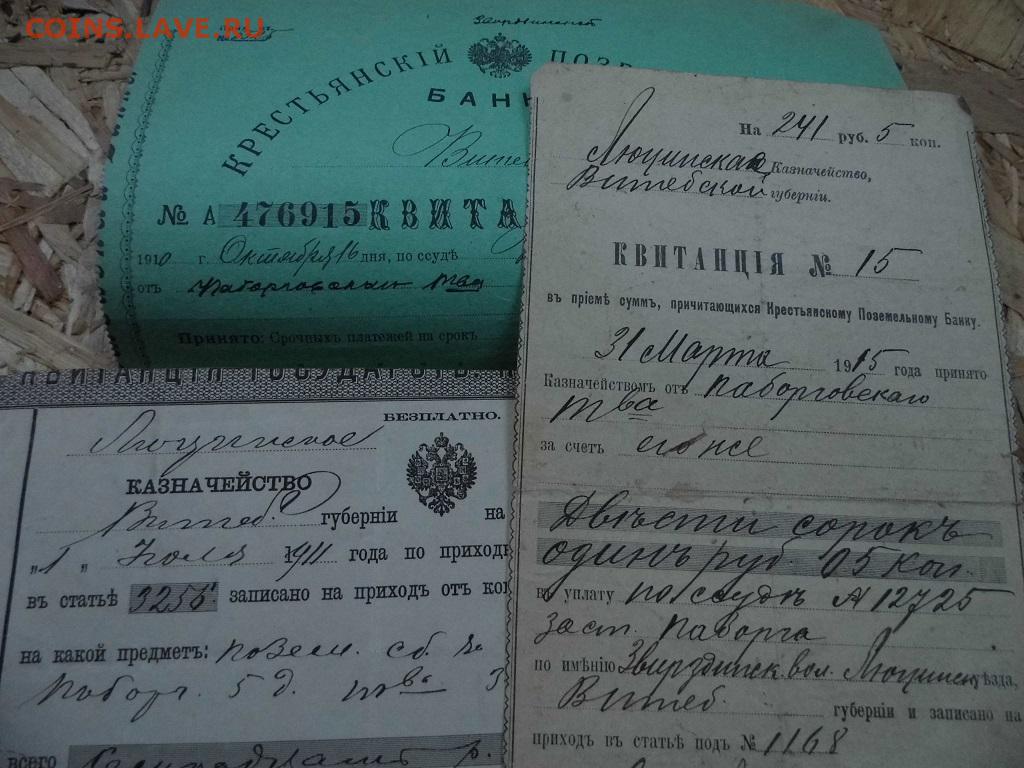 COINS.LAVE.RU
КРЕСТЬЯНСКІЙ ПОЗ
БАН
Вите
№ А 476915 КВИТА
1910 г. Октября 16 дня, по ссудѣ
отъ Наборговскаго тва
Принято: Срочныхъ платежей на срокъ
На 241 руб. 5 коп.
Люцинская Казначейство,
Витебской губерніи.
КВИТАНЦІЯ № 15
въ пріемѣ суммъ, причитающихся Крестьянскому Поземельному Банку.
31 Марта 1915 года принято
Казначействомъ отъ Наборговскаго
тва
за счетъ его же
Двѣсти сорокъ
одинъ руб. 05 коп.
въ уплату по ссудѣ № 12725
заст. Наборга
по имѣнію Звирздинск. вол. Люцинск. уѣзда,
Витеб. губерніи и записано на
приходъ въ статьѣ подъ № 1168
КВИТАНЦІЯ ГОСУДАРСТВ
БЕЗПЛАТНО.
Люцинское
КАЗНАЧЕЙСТВО
Витеб. губерніи на
„1„ Іюля 1911 года по приход
въ статьѣ 3256 записано на приходъ отъ ко
на какой предметъ: позем. сб.
Наборг. 5 д. тва 3
всего